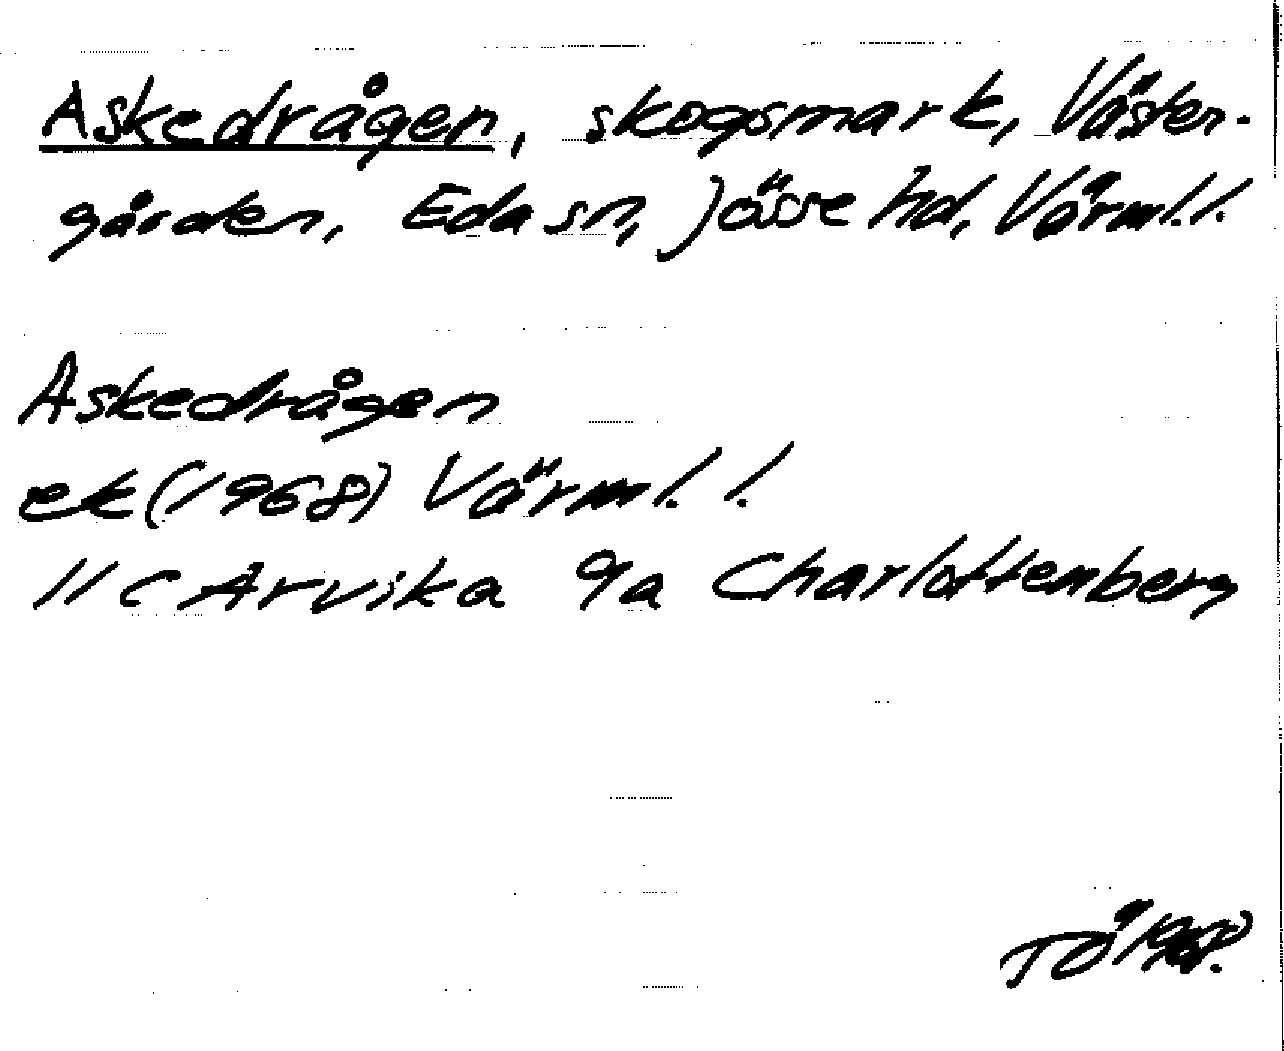 Askedrågen, skogsmark, Väster-
gården, Eda sn, Jösse hd, Värml. l.
Askedrågen
ek (1968) Värml. l.
11 C Arvika 9a Charlottenberg
TÖ